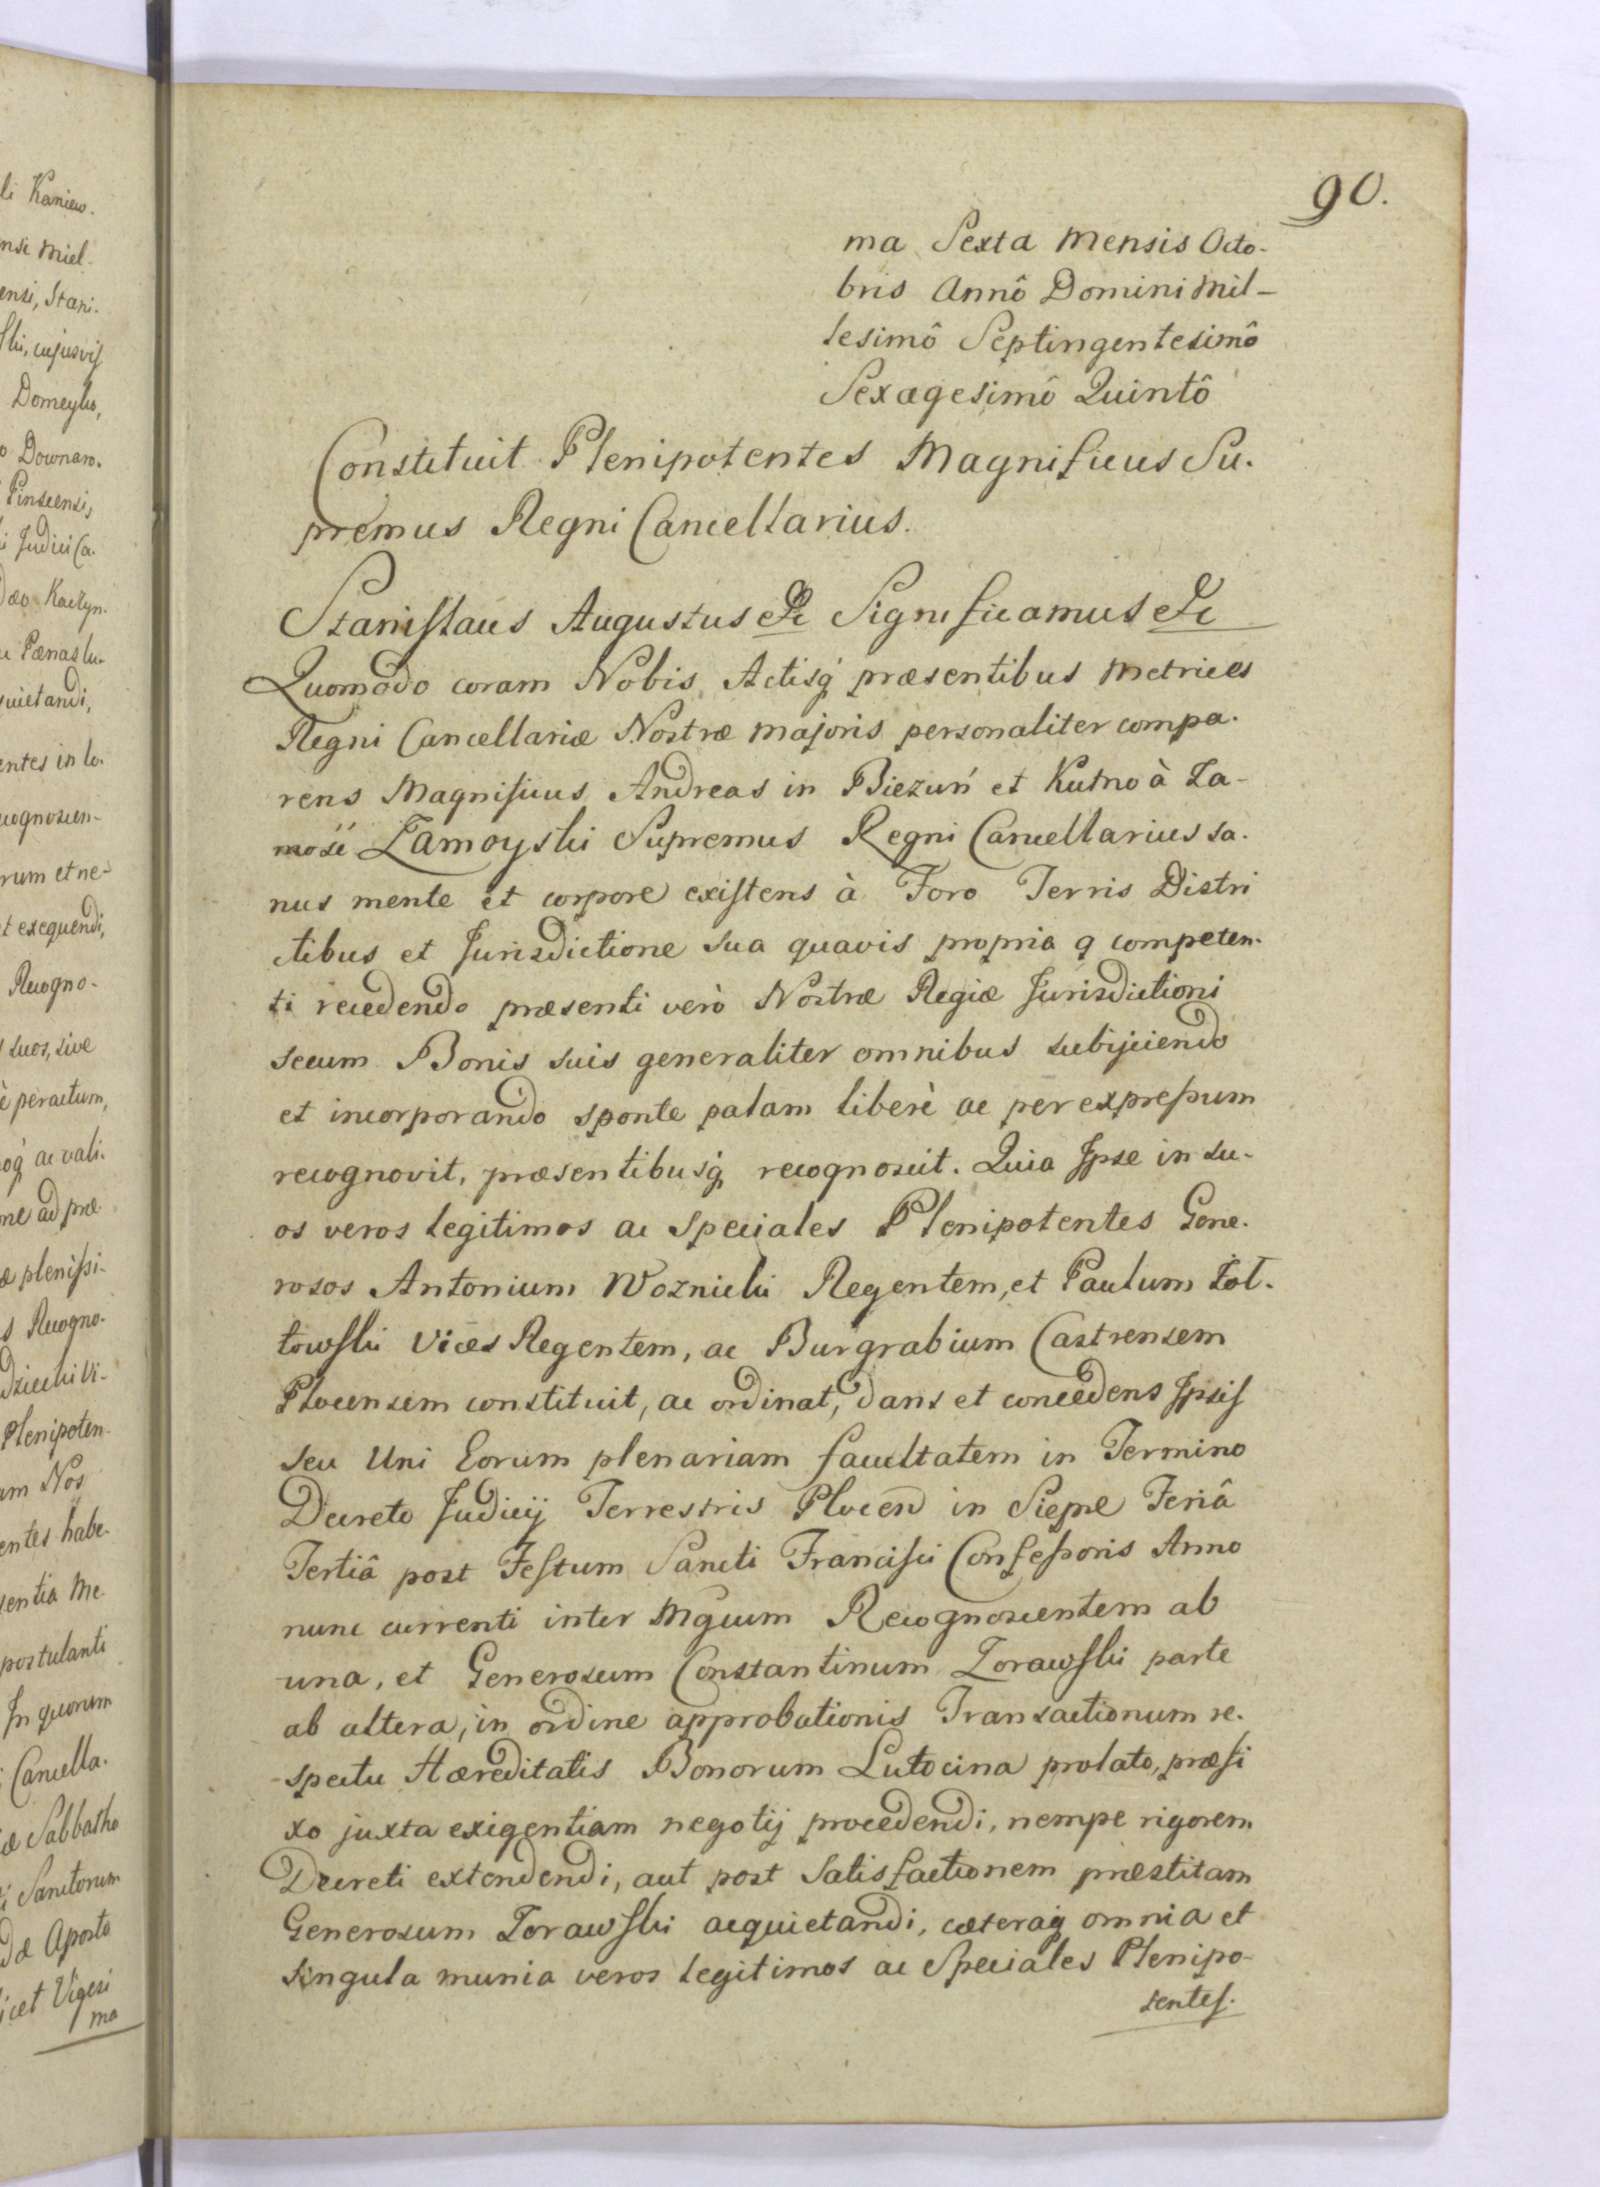 li Kaniew.
nsi Miel.
ensi, Stani.
cujusvis
Domeyko,
Downaro.
Pinscensi,
Judici Ca.
Pænas lu.
quietandi,
entes in lo.
cognoscen-
rum et ne-
et exequendi,
Recogno-
suos, sive
peractum,
ac vali.
ad præ
plenissi-
Recogno.
Plenipoten-
am Nos
entes habe-
sentia Me.
postulanti
In quorum
Cancella.
Sabbatho
Sanctorum
Aposto
icet Vigesi
ma
90.
ma Sexta Mensis Octo-
bris Annô Domini Mil-
lesimô Septingentesimô
Sexagesimô Quintô
Constituit Plenipotentes Magnificus Su.
premus Regni Cancellarius.
Stanislaus Augustus &c Significamus &c
Quomodo coram Nobis Actisq́ præsentibus Metrices
Regni Cancellariæ Nostræ Majoris personaliter compa.
rens Magnificus Andreas in Biezuń et Kutno à Za-
mość Zamoyski Supremus Regni Cancellarius sa.
nus mente et corpore existens à Foro Terris Distri
ctibus et Jurisdictione sua quavis propria q competen.
ti recedendo præsenti verò Nostræ Regiæ Jurisdictioni
secum Bonis suis generaliter omnibus subijciendo
et incorporando sponte palam liberè ac per expressum
recognovit, præsentibusq́ recognoscit. Quia Ipse in su-
os veros legitimos ac Speciales Plenipotentes Gene.
rosos Antonium Woznicki Regentem, et Paulum Żoł.
towski Vices Regentem, ac Burgrabium Castrensem
Plocensem constituit, ac ordinat, dans et concedens Ipsis
seu Uni Eorum plenariam facultatem in Termino
Decreto Judicij Terrestris Plocen in Sierpc Feriâ
Tertiâ post Festum Sancti Francisci Confessoris Anno
nunc currenti inter Mgcum Recognoscentem ab
una, et Generosum Constantinum Zorawski parte
ab altera, in ordine approbationis Transactionum re.
spectu Hæreditatis Bonorum Lutocina prolato, præfi
xo juxta exigentiam negotij procedendi, nempe rigorem
Decreti extendendi, aut post Satisfactionem præstitam
Generosum Zorawski acquietandi, cæteraq́ omnia et
singula munia veros legitimos ac Speciales Plenipo-
tentes.